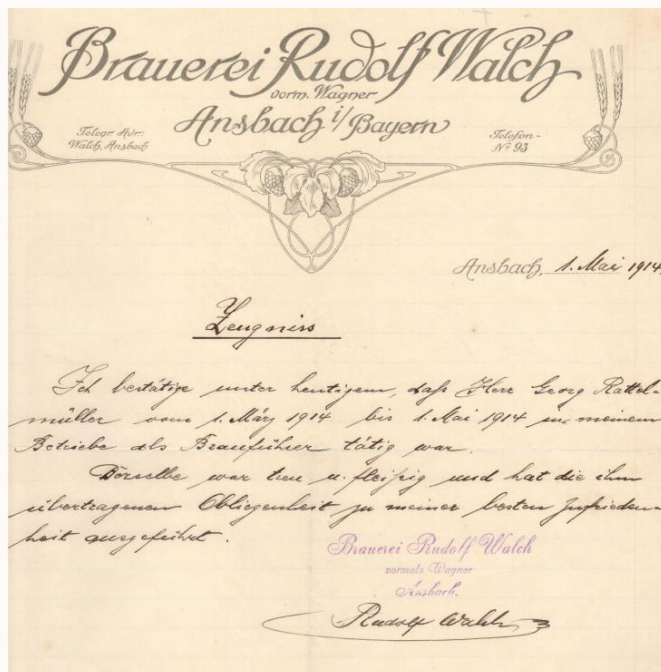 Brauerei Rudolf Walch
vorm. Wagner
Ansbach i/Bayern
Telegr. Adr:
Walch, Ansbach
Telefon-
Nº 93
Ansbach, 1. Mai 1914.
Zeugniss
Ich bestätige unter heutigem, daß Herr Georg Rattel-
müller vom 1. März 1914 bis 1. Mai 1914 in meinem
Betriebe als Brauführer tätig war.
Derselbe war treu u. fleißig und hat die ihm
übertragenen Obliegenheit zu meiner besten Zufrieden-
heit ausgeführt.
Brauerei Rudolf Walch
vormals Wagner
Ansbach.
Rudolf Walch